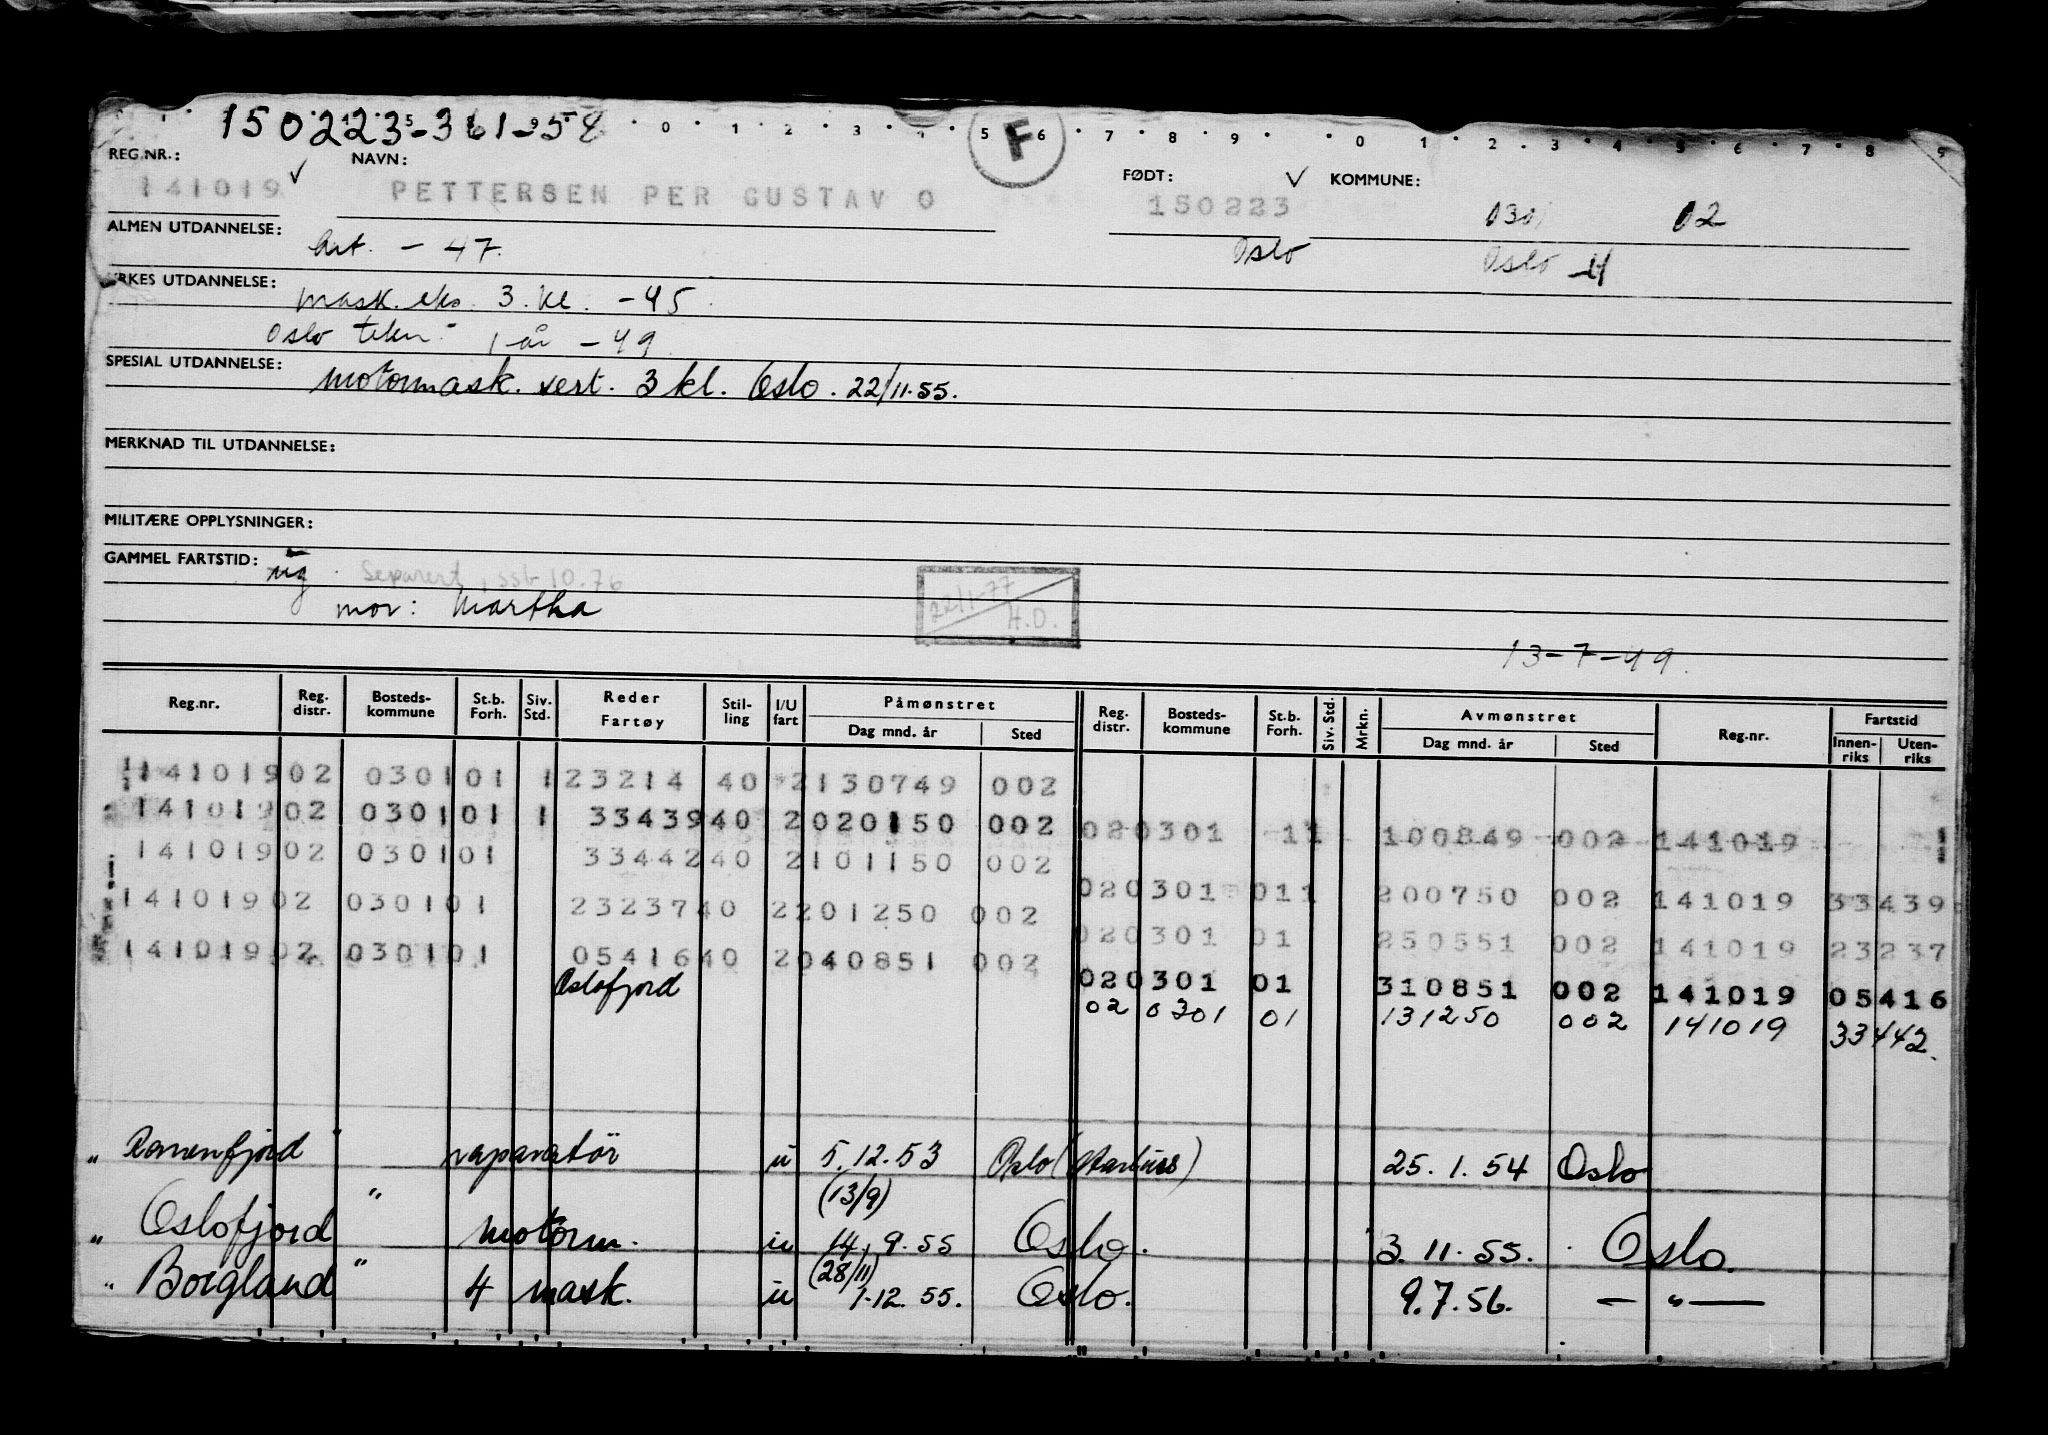 150223-361-58
F
REG.NR.: NAVN: FØDT: KOMMUNE:
141019 PETTERSEN PER GUSTAV O 150223 0301 02
ALMEN UTDANNELSE: - 47. Oslo Oslo
YRKES UTDANNELSE: mask. eks. 3. kl. - 45
Oslo tekn. 1 år - 49
SPESIAL UTDANNELSE: motormask. sert. 3 kl. Oslo. 22/11.55.
MERKNAD TIL UTDANNELSE:
MILITÆRE OPPLYSNINGER:
GAMMEL FARTSTID: ug Separert, 10.76
mor: Martha
22/1-77 H.O.
13-7-49.
Reg.nr. Reg. distr. Bosteds-kommune St.b. Forh. Siv. Std. Reder Fartøy Stil-ling I/U fart Påmønstret Dag mnd. år Sted Reg. distr. Bosteds-kommune St.b. Forh. Siv. Std. Mrkn. Avmønstret Dag mnd. år Sted Reg.nr. Fartstid Innen-riks Uten-riks
141019 02 0301 01 1 23214 40 2 130749 002
141019 02 0301 01 1 33439 40 2 020150 002 02 0301 11 100849 002 141019
141019 02 0301 01 33442 40 2 101150 002
02 0301 011 200750 002 141019 33439
141019 02 0301 01 23237 40 2 201250 002
02 0301 01 250551 002 141019 23237
141019 02 0301 01 05416 40 2 040851 002
Oslofjord 02 0301 01 310851 002 141019 05416
02 0301 01 131250 002 141019 33442.
" Ranenfjord " reparatör u 5.12.53 Oslo 25.1.54 Oslo
(13/9)
" Oslofjord " motorm. u 14.9.55 Oslo. 3.11.55. Oslo.
(28/11)
" Borgland " 4 mask. u 1.12.55. Oslo. 9.7.56. — " —